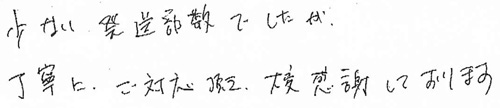 少ない発送部数でしたが、
丁寧に、ご対応頂き、大変感謝しております